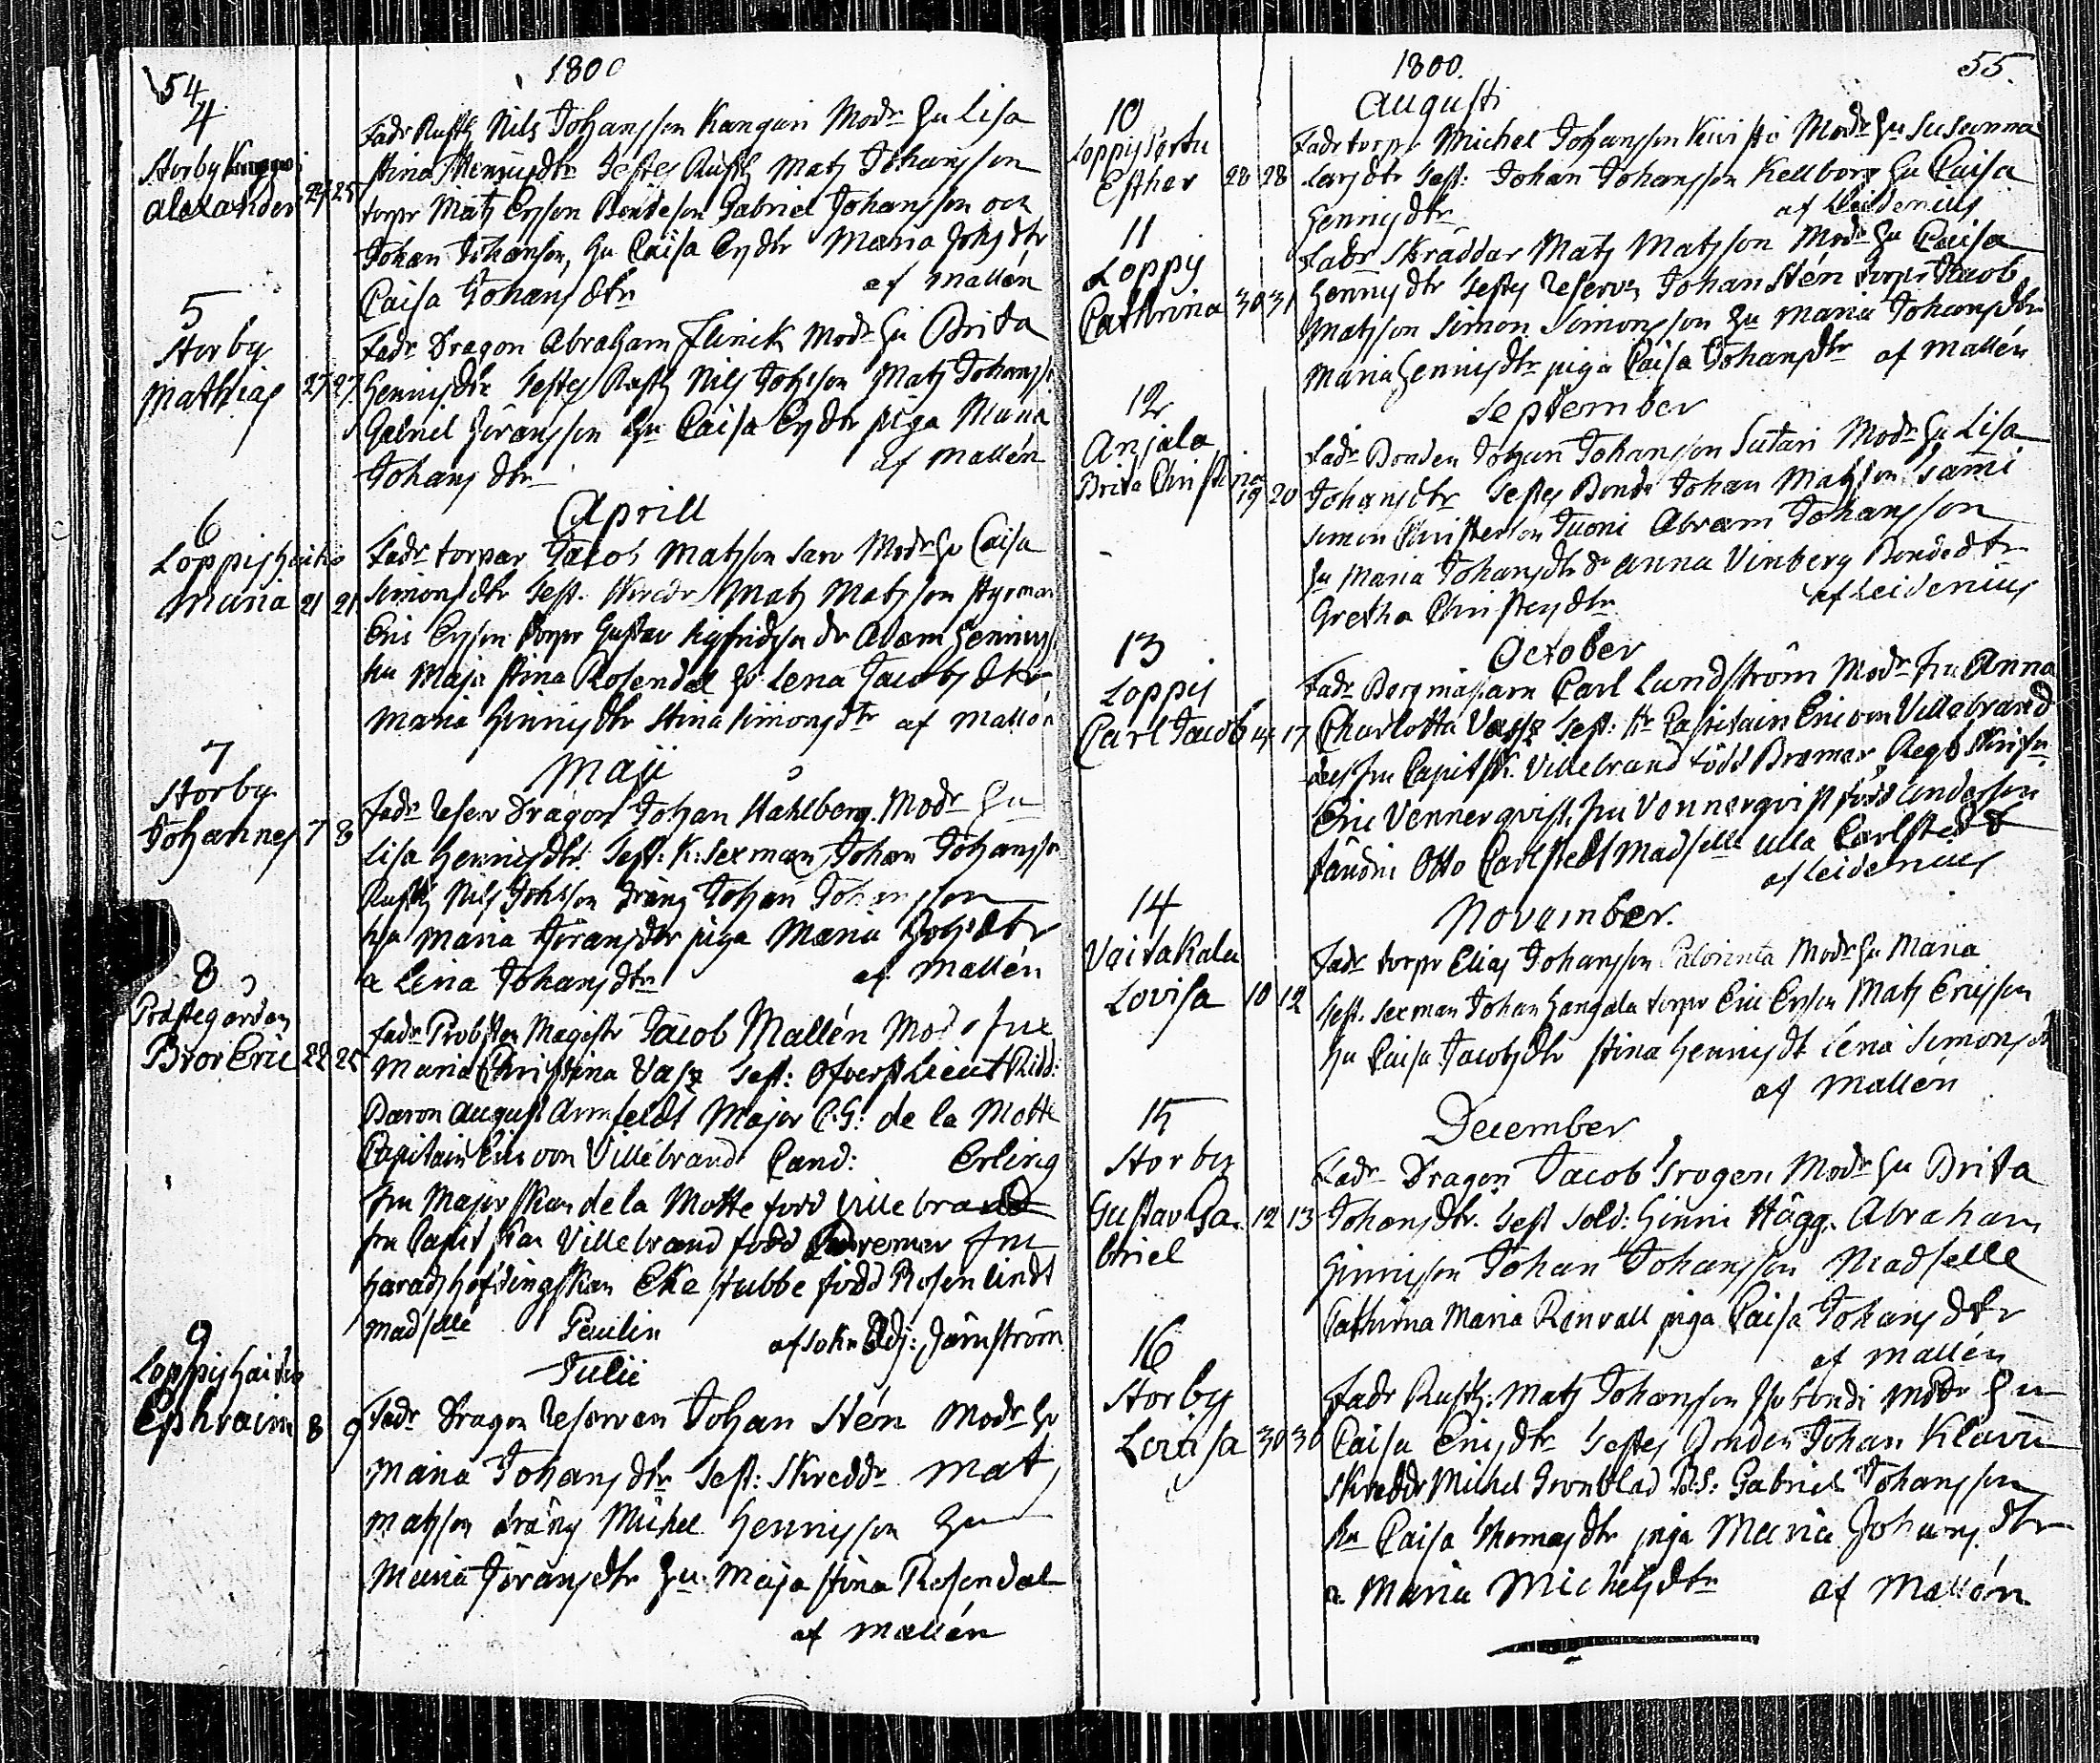 54
1800
4
Storby
Alexander 24 25
Fadr Rusth Nils Johansson Kangari Modr Hu Lisa
Stina Hennigsdtr Testes Rusth Mats Johansson
torpr Mats Ersson Bondeson Gabriel Johansson och
Johan Johansson, Hu Caisa Ersdtr Maria Johsdtr
Caisa Johansdtr af Mallén
5
Storby
Mathias 25 27
Fadr Dragon Abraham Flinck Modr Hu Brita
Hennigsdtr Testes Rusth Nils Johsson Mats Johanss
Gabriel Göransson Hu Caisa Ersdtr piga Maria
Johansdtr af Mallén
Aprill
6
Loppis
Maria 21 21
Fadr torpar Jacob Matsson Modr Hu Caisa
Simonsdtr Test. Skredr Mats Matsson Styrman
Eric Ersson torpr Gustav Sigfridson dr Adam Hennigs
hu Maja Stina Rosendal Hu Lena Jacobsdtr
Maria Hennigsdtr Stina Simonsdtr af Mallén
Maji
7
Storby
Johannes 7 8
Fadr Reserv Dragon Johan Stahlberg Modr Hu
Lisa Hennigsdtr. Test: K: Sexman Johan Johansson
Rusth Nils Johsson dräng Johan Johansson
hu Maria Göransdtr piga Maria Johsdtr
a Lena Johansdtr af Mallén
8
Prästegården
Bror Eric 22 25
Fadr Probsten Magistr Jacob Mallén Modr Fru
Maria Christina Vasz Test: Öfverst Lieut Ridd:
Baron August Armfeldt Major C.G: de la Motte
Capitain Eric von Villebrand Cand: Erling
Fru Majorskan de la Motte född Villebrand
fru Capitskan Villebrand född Bremer fru
Haradshöfdingskan Ekestubbe född Rosenlindt
Madselle Peulin af Sokn Adj: Järnström
Julii
9
Loppis Haitis
Ephraim 8 9
Fadr Dragon Reserven Johan Stén Modr Hu
Maria Johansdtr Test: Skreddr Mats
Matsson dräng Michel Hennigsson Hu
Maria Göransdtr Hu Maja Stina Rosendal
af Mallén
1800.
55.
Augusti
10
Loppis
Esther 28 28
Fadr torpr Michel Johansson Modr Hu Susanna
Larsdtr Test: Johan Johansson Kellborg Hu Caisa
Hennigsdtr af Leidenius
11
Loppis
Cathrina 30 31
Fadr Skräddar Mats Matsson Modr Hu Caisa
Hennigsdtr Testes Reserv Johan Stén torpr Jacob
Matsson Simon Simonsson Hu Maria Johansdtr
Maria Hennigsdtr piga Caisa Johansdtr af Mallén
September
12
Anjala
Brita Christina 19 20
Fadr Bonden Johan Johansson Sutari Modr Hu Lisa
Johansdtr Testes Bonde Johan Matsson Sami
Simon Christerson Tuoni Abram Johansson
Hu Maria Johansdtr dr Anna Vinberg Bondedtr
Gretha Christersdtr af Leidenius
October
13
Loppis
Carl Jacob 15 17
Fadr Bergmästarn Carl Lundström Modr Fru Anna
Charlotta Vasz Test: Hr Capitain Eric von Villebrand
des fru Capitsk. Villebrand född Bremer, Regs Skrifv
Eric Vennerqvist, fru Vennerqvist född Andersson
Fändri Otto Carlstedt Madselle Ulla Carlstedt
af Leidenius
November.
14
Vaitakala
Lovisa 10 12
Fadr torpr Elias Johansson Modr Hu Maria
Test. Sexman Johan Hangala torpr Eric Ersson Mats Ericsson
Hu Caisa Jacobsdtr Stina Hennigsdt Lena Simonsdt
af Mallén
December
15
Storby
Gustav Ga. 12 13
briel
Fadr Dragon Jacob Trogen Modr Hu Brita
Johansdtr. Test Sold: Hinric Hägg. Abraham
Hinricson Johan Johansson Madselle
Cathrina Maria Renvall piga Caisa Johansdtr
af Mallén
16
Storby
Lovisa 30 30
Fadr Rusth: Mats Johansson Modr Hu
Caisa Ericsdtr Testes Bonden Johan Klavu
Skreddr Michel Grönblad B.S: Gabriel Johansson
Hu Caisa Thomasdtr piga Maria Johansdtr
a Maria Michelsdtr af Mallén